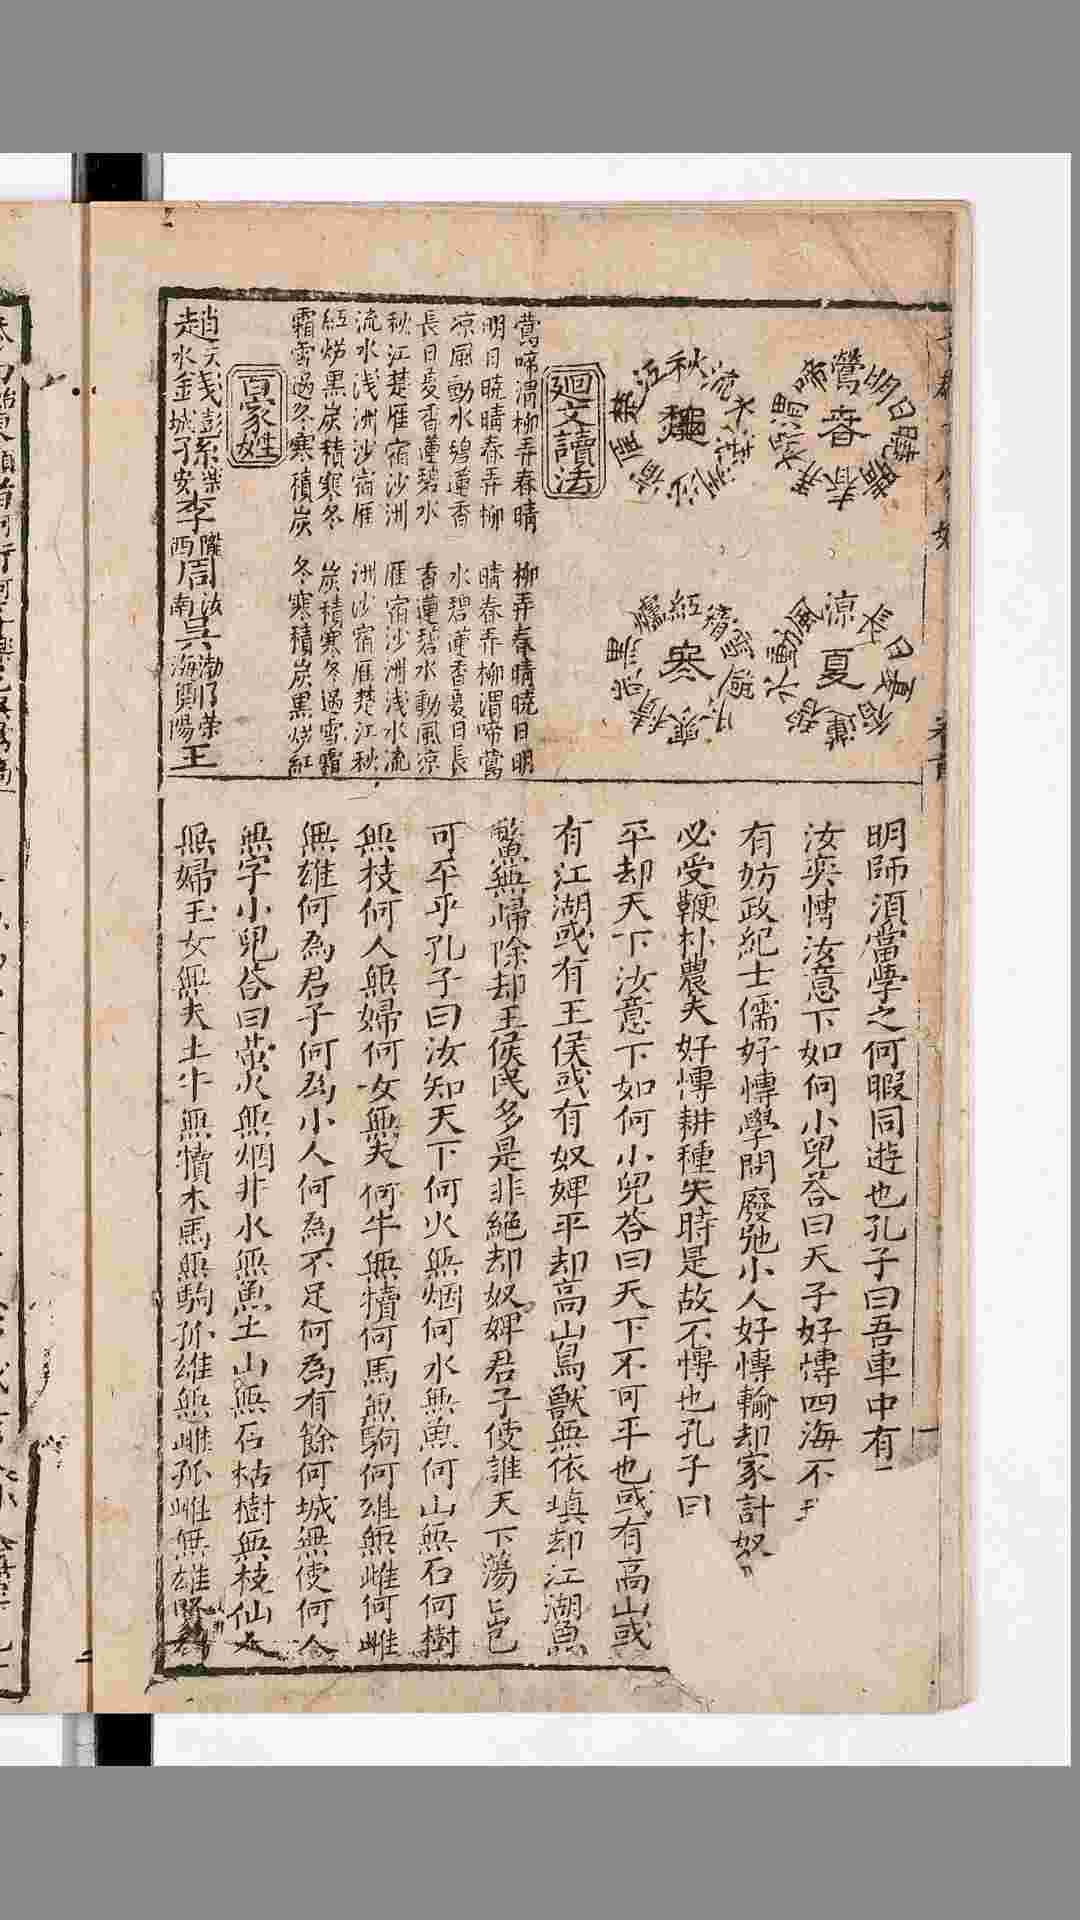 春
鶯啼渭柳弄春晴曉日明
夏
香蓮碧水動風涼夏日長
秋江楚雁宿沙洲淺水流
寒
紅爐黑炭積寒冬過雪霜
廻文讀法
鶯啼渭柳弄春晴 柳弄春晴曉日明
明日曉晴春弄柳 晴春弄柳渭啼鶯
凉風動水碧蓮香 水碧蓮香夏日長
長日夏香蓮碧水 香蓮碧水動風凉
秋江楚雁宿沙洲 雁宿沙洲浅水流
流水浅洲沙宿雁 洲沙宿雁楚江秋
紅炉黑炭積寒冬 炭積寒冬過雪霜
霜雪過冬寒積炭 冬寒積炭黑炉紅
百家姓
趙天水錢彭城孫樂安李隴西周汝南吳渤海鄭榮陽王
明師須當學之何暇同遊也孔子曰吾車中有
汝奕愽汝意下如何小兒荅曰天子好愽四海不
有妨政紀士儒好愽學問廢弛小人好愽輸却家計奴
必受鞭朴農夫好愽耕種失時是故不愽也孔子曰
平却天下汝意下如何小兒荅曰天下不可平也或有高山或
有江湖或有王侯或有奴婢平却高山鳥獸無依塡却江湖魚
鱉無歸除却王侯民多是非絕却奴婢君子使誰天下蕩〻豈
可平乎孔子曰汝知天下何火無烟何水無魚何山無石何樹
無枝何人無婦何女無夫何牛無犢何馬無駒何雄無雌何雌
無雄何為君子何為小人何為不足何為有餘何城無使何人
無字小兒荅曰萤火無烟井水無魚土山無石枯樹無枝仙人
無婦玉女無夫土牛無犢木馬無駒孤雄無雌孤雌無雄賢為